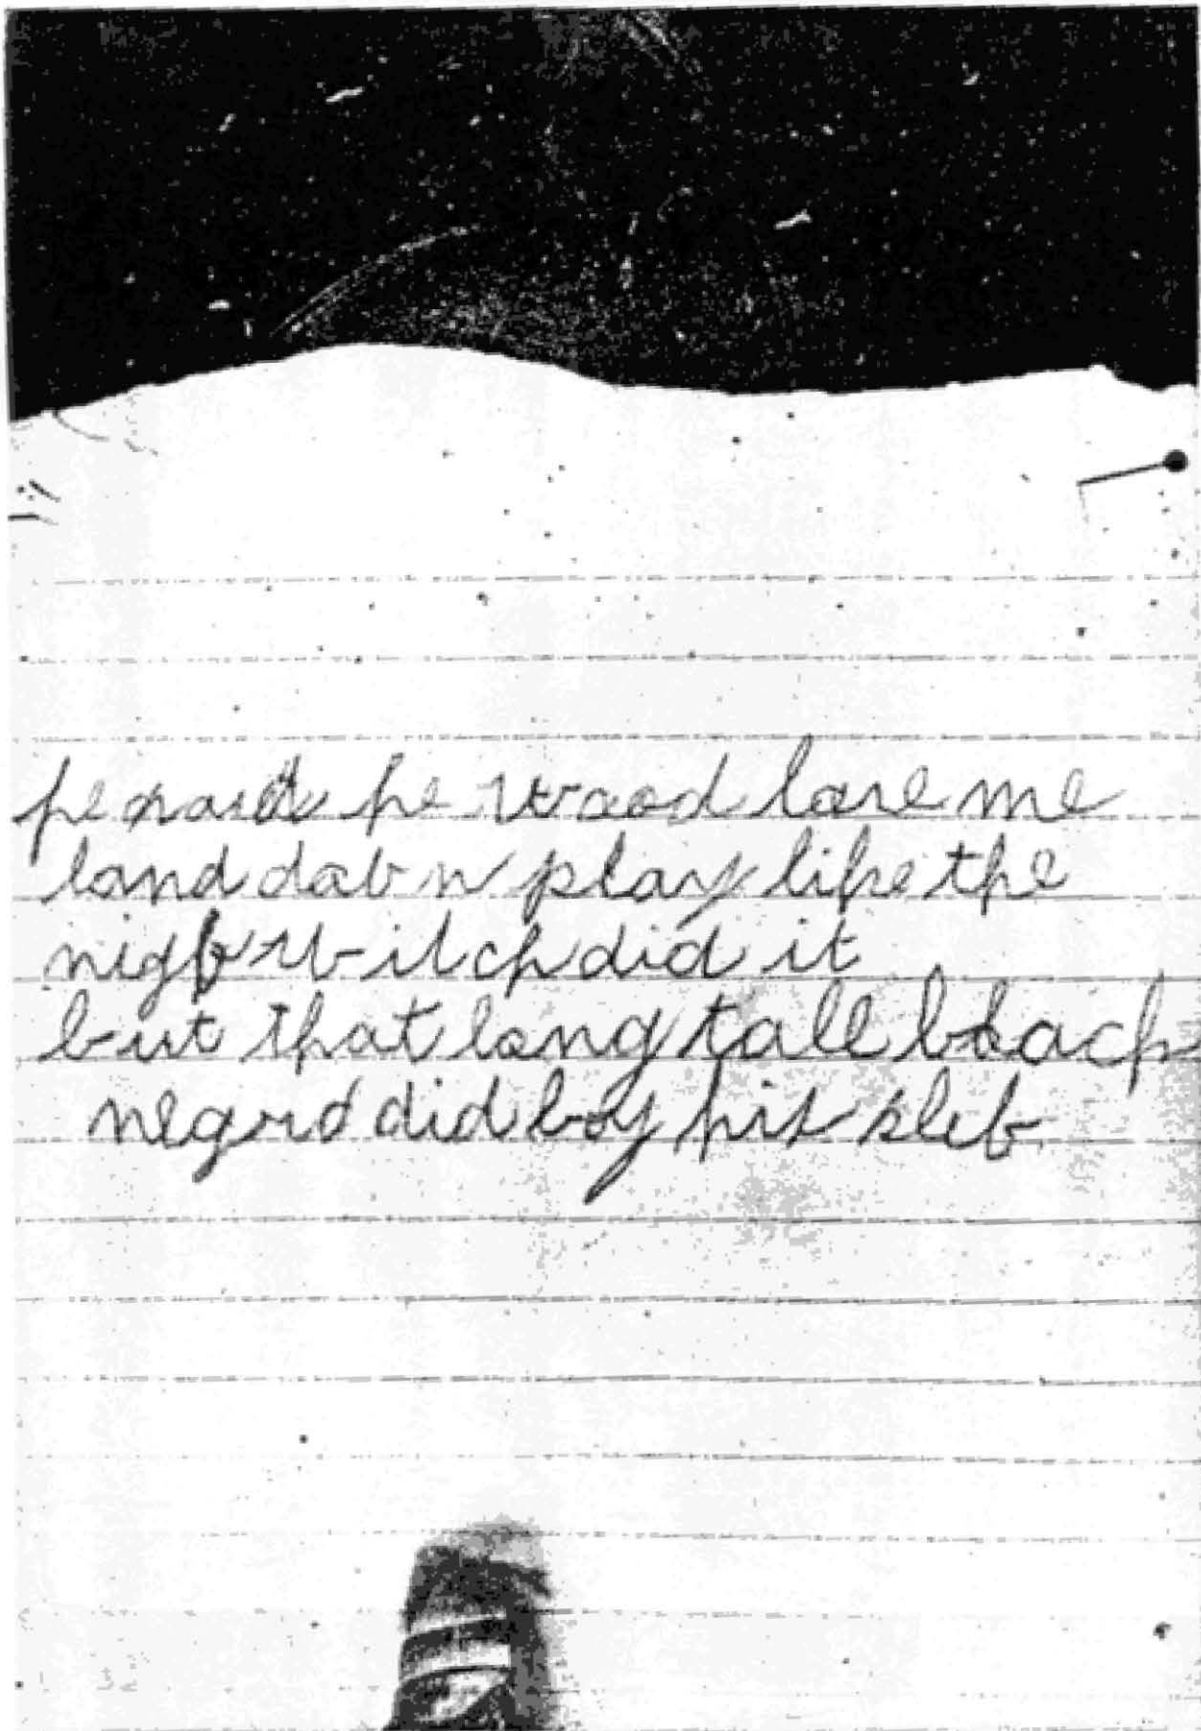 he said he wood love me
land dab n play like the
night witch did it
but that long tall black
negro did boy his sleb